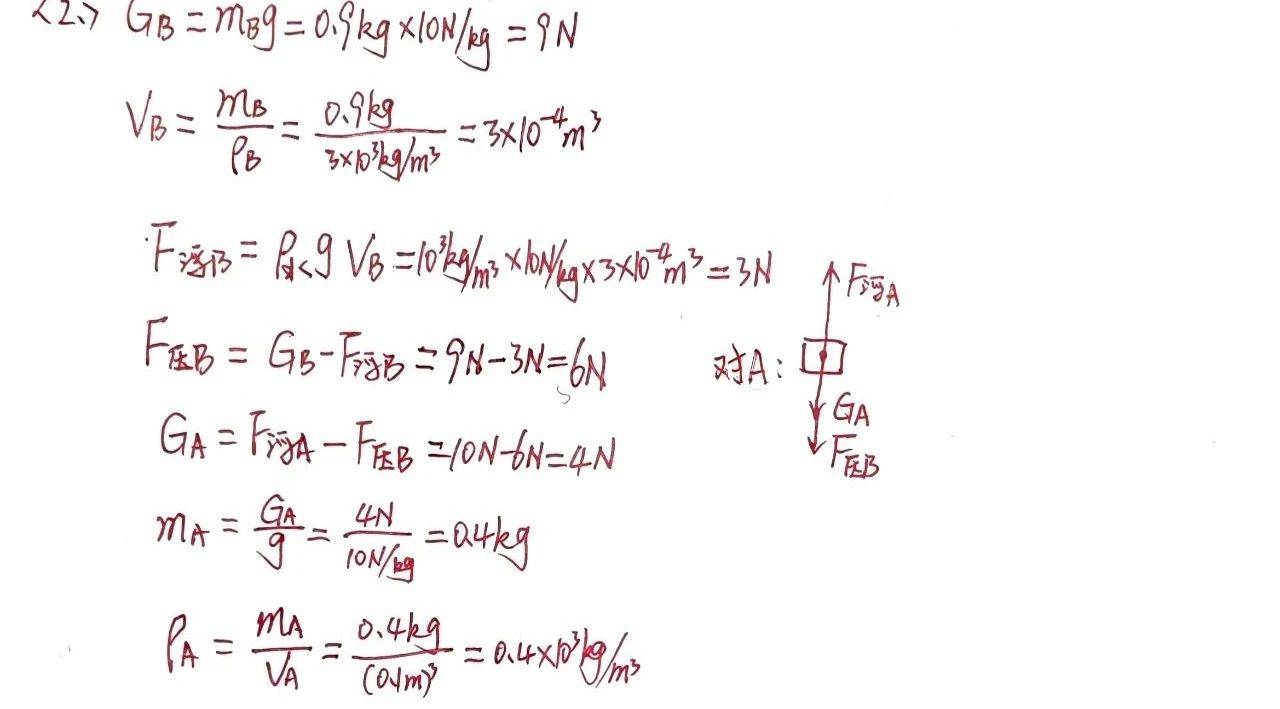 <2.> GB = mBg = 0.9kg×10N/kg = 9N
VB = mB/ρB = 0.9kg/3×10³kg/m³ = 3×10⁻⁴m³
F浮B = ρ水g VB = 10³kg/m³×10N/kg×3×10⁻⁴m³ = 3N
F浮A
F压B = GB - F浮B = 9N - 3N = 6N
对A:
GA
GA = F浮A - F压B = 10N - 6N = 4N
F压B
mA = GA/g = 4N/10N/kg = 0.4kg
ρA = mA/VA = 0.4kg/(0.1m)³ = 0.4×10³kg/m³